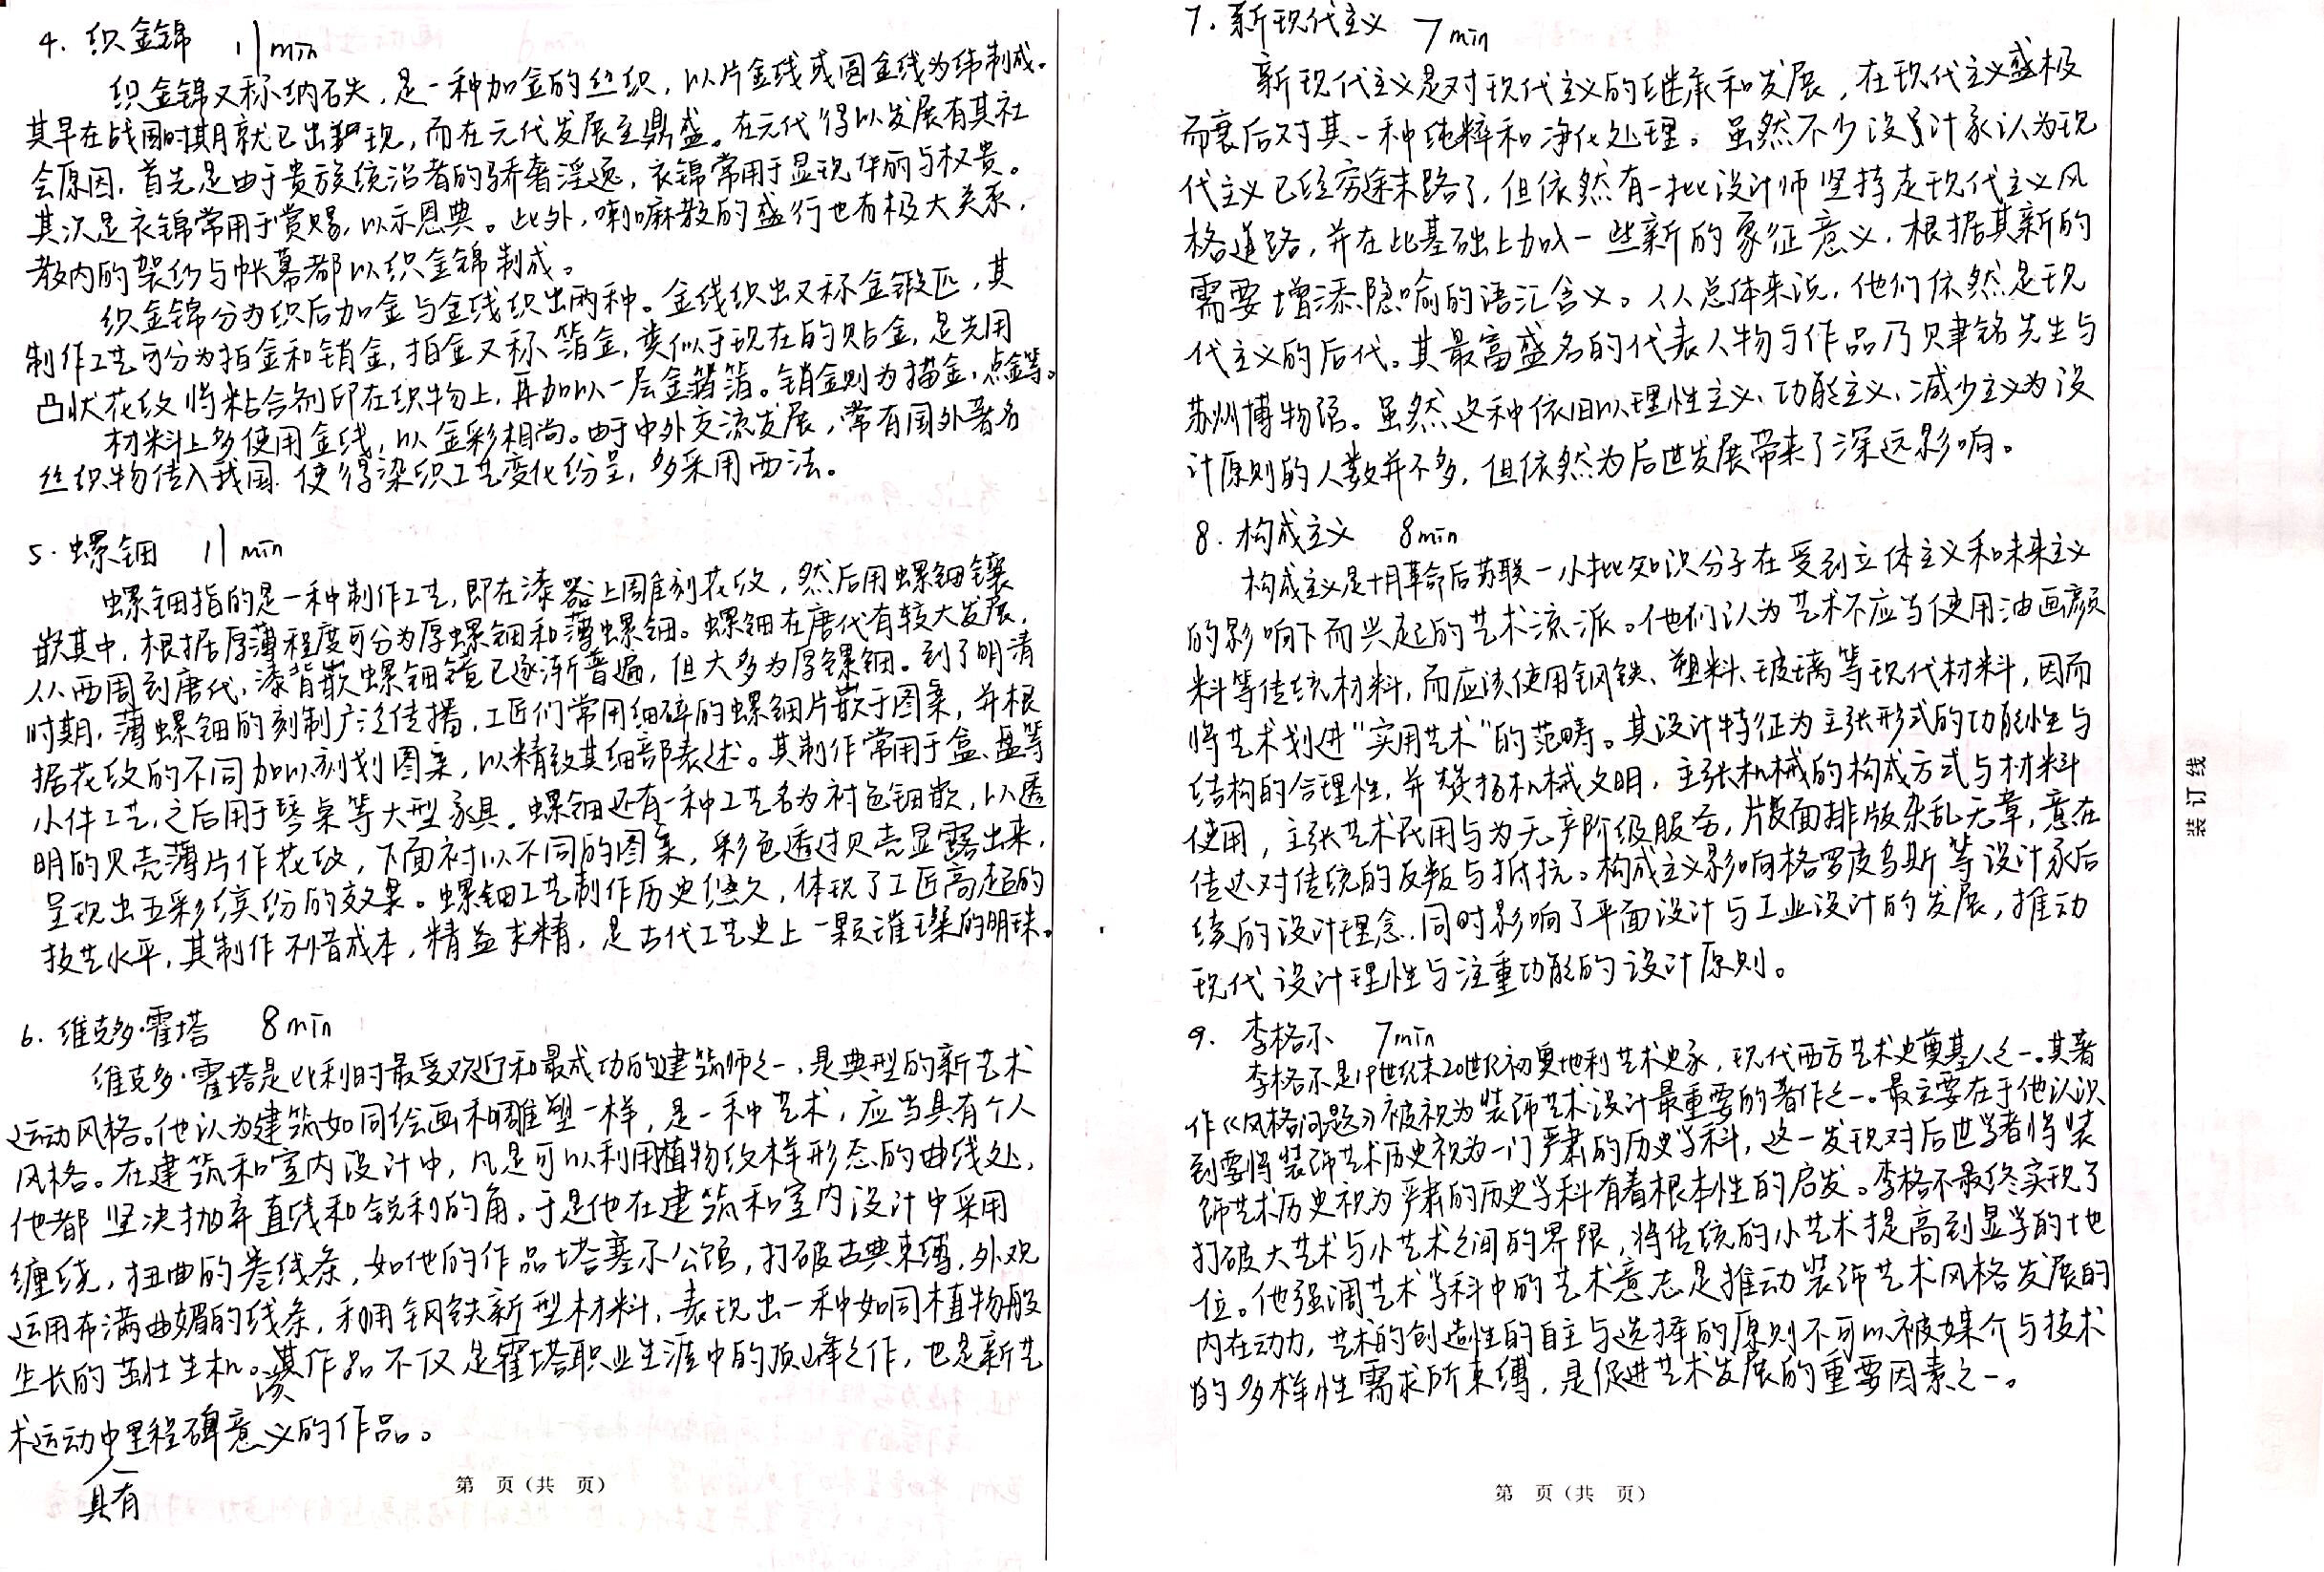 4. 织金锦 11min
织金锦又称纳石失，是一种加金的丝织，以片金线或圆金线为纬制成。
其早在战国时期就已出现，而在元代发展至鼎盛。在元代得以发展有其社
会原因，首先是由于贵族统治者的骄奢淫逸，衣锦常用于显现华丽与权贵。
其次是衣锦常用于赏赐，以示恩典。此外，喇嘛教的盛行也有极大关系，
教内的袈纱与帐幕都以织金锦制成。
织金锦分为织后加金与金线织出两种。金线织出又称金锻匹，其
制作工艺可分为拍金和销金，拍金又称箔金，类似于现在的贴金，是先用
凸状花纹将粘合剂印在织物上，再加以一层金箔。销金则为描金、点金等。
材料上多使用金线，以金彩相尚。由于中外交流发展，常有国外著名
丝织物传入我国，使得染织工艺变化纷呈，多采用西法。
5. 螺钿 11min
螺钿指的是一种制作工艺，即在漆器上雕刻花纹，然后用螺钿镶
嵌其中，根据厚薄程度可分为厚螺钿和薄螺钿。螺钿在唐代有较大发展，
从西周到唐代，漆背嵌螺钿镜已逐渐普遍，但大多为厚螺钿。到了明清
时期，薄螺钿的刻制广泛传播，工匠们常用细碎的螺钿片嵌于图案，并根
据花纹的不同加以刻划图案，以精致其细部表述。其制作常用于盒、盘等
小件工艺，之后用于琴桌等大型家具。螺钿还有一种工艺名为衬色钿嵌，以透
明的贝壳薄片作花纹，下面衬以不同的图案，彩色透过贝壳显露出来，
呈现出五彩缤纷的效果。螺钿工艺制作历史悠久，体现了工匠高超的
技艺水平，其制作不惜成本，精益求精，是古代工艺史上一颗璀璨的明珠。
6. 维克多·霍塔 8min
维克多·霍塔是比利时最受欢迎和最成功的建筑师之一，是典型的新艺术
运动风格。他认为建筑如同绘画和雕塑一样，是一种艺术，应当具有个人
风格。在建筑和室内设计中，凡是可以利用植物纹样形态的曲线处，
他都坚决抛弃直线和锐利的角。于是他在建筑和室内设计中采用
缠绕，扭曲的卷线条，如他的作品塔塞尔公馆，打破古典束缚，外观
运用布满曲媚的线条，利用钢铁新型材料，表现出一种如同植物般
生长的茁壮生机。该作品不仅是霍塔职业生涯中的顶峰之作，也是新艺
术运动中具有里程碑意义的作品。
第 页（共 页）
7. 新现代主义 7min
新现代主义是对现代主义的继承和发展，在现代主义盛极
而衰后对其一种纯粹和净化处理。虽然不少设计家认为现
代主义已经穷途末路了，但依然有一批设计师坚持走现代主义风
格道路，并在此基础上加以一些新的象征意义，根据其新的
需要增添隐喻的语汇含义。从总体来说，他们依然是现
代主义的后代。其最富盛名的代表人物与作品乃贝聿铭先生与
苏州博物馆。虽然这种依旧以理性主义、功能主义、减少主义为设
计原则的人数并不多，但依然为后世发展带来了深远影响。
8. 构成主义 8min
构成主义是十月革命后苏联一小批知识分子在受到立体主义和未来主义
的影响下而兴起的艺术流派。他们认为艺术不应当使用油画颜
料等传统材料，而应该使用钢铁、塑料、玻璃等现代材料，因而
将艺术划进“实用艺术”的范畴。其设计特征为主张形式的功能性与
结构的合理性，并赞扬机械文明，主张机械的构成方式与材料
使用，主张艺术民用与为无产阶级服务，版面排版杂乱无章，意在
传达对传统的反叛与抵抗。构成主义影响格罗皮乌斯等设计家后
续的设计理念，同时影响了平面设计与工业设计的发展，推动
现代设计理性与注重功能的设计原则。
9. 李格尔 7min
李格尔是19世纪末20世纪初奥地利艺术史家，现代西方艺术史奠基人之一。其著
作《风格问题》被视为装饰艺术设计最重要的著作之一。最主要在于他认识
到要将装饰艺术历史视为一门严肃的历史学科，这一发现对后世学者将装
饰艺术历史视为严肃的历史学科有着根本性的启发。李格尔最终实现了
打破大艺术与小艺术之间的界限，将传统的小艺术提高到显学的地
位。他强调艺术学科中的艺术意志是推动装饰艺术风格发展的
内在动力，艺术的创造性的自主与选择的原则不可以被媒介与技术
的多样性需求所束缚，是促进艺术发展的重要因素之一。
第 页（共 页）
装订线